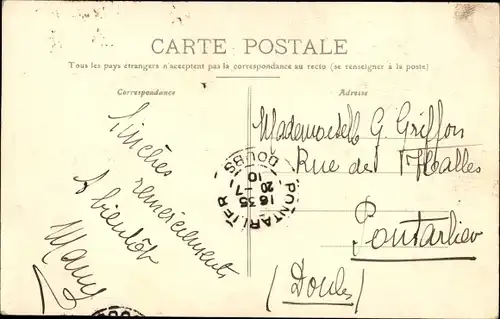 CARTE POSTALE
Tous les pays étrangers n'acceptent pas la correspondance au recto (se renseigner à la poste)
Correspondance
Sincères
remerciements
A bientôt
Adresse
Mademoiselle G. Griffon
Rue des Halles
Pontarlier
(Doubs)
PONTARLIER
16 35
20 -7
10
DOUBS